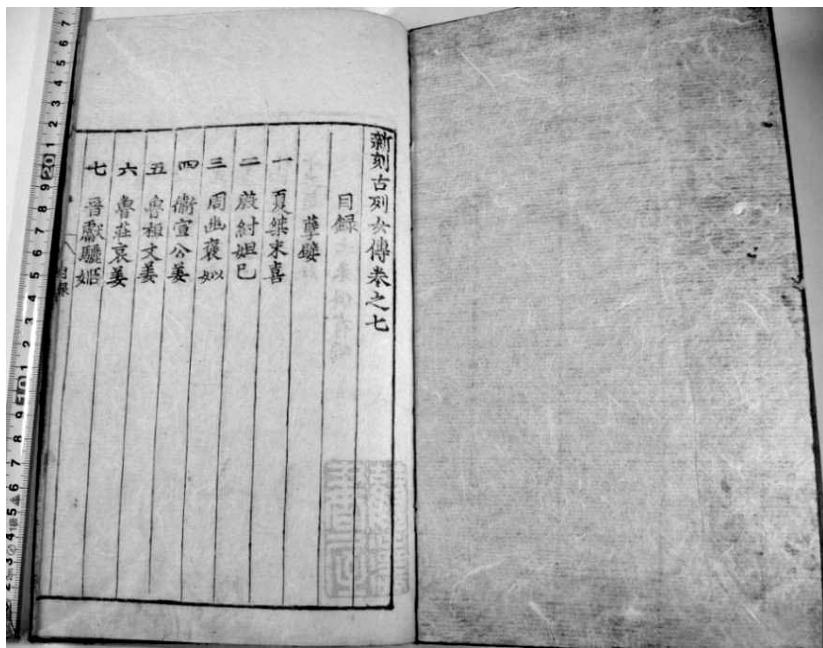 新刻古列女傳卷之七
目録
孽嬖
一 夏桀末喜
二 殷紂妲己
三 周幽褒姒
四 衛宣公姜
五 魯桓文姜
六 魯莊哀姜
七 晉獻驪姬